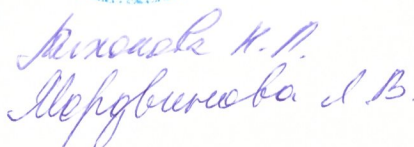 Тихонова Н. П.
Мордвинова Л. В.